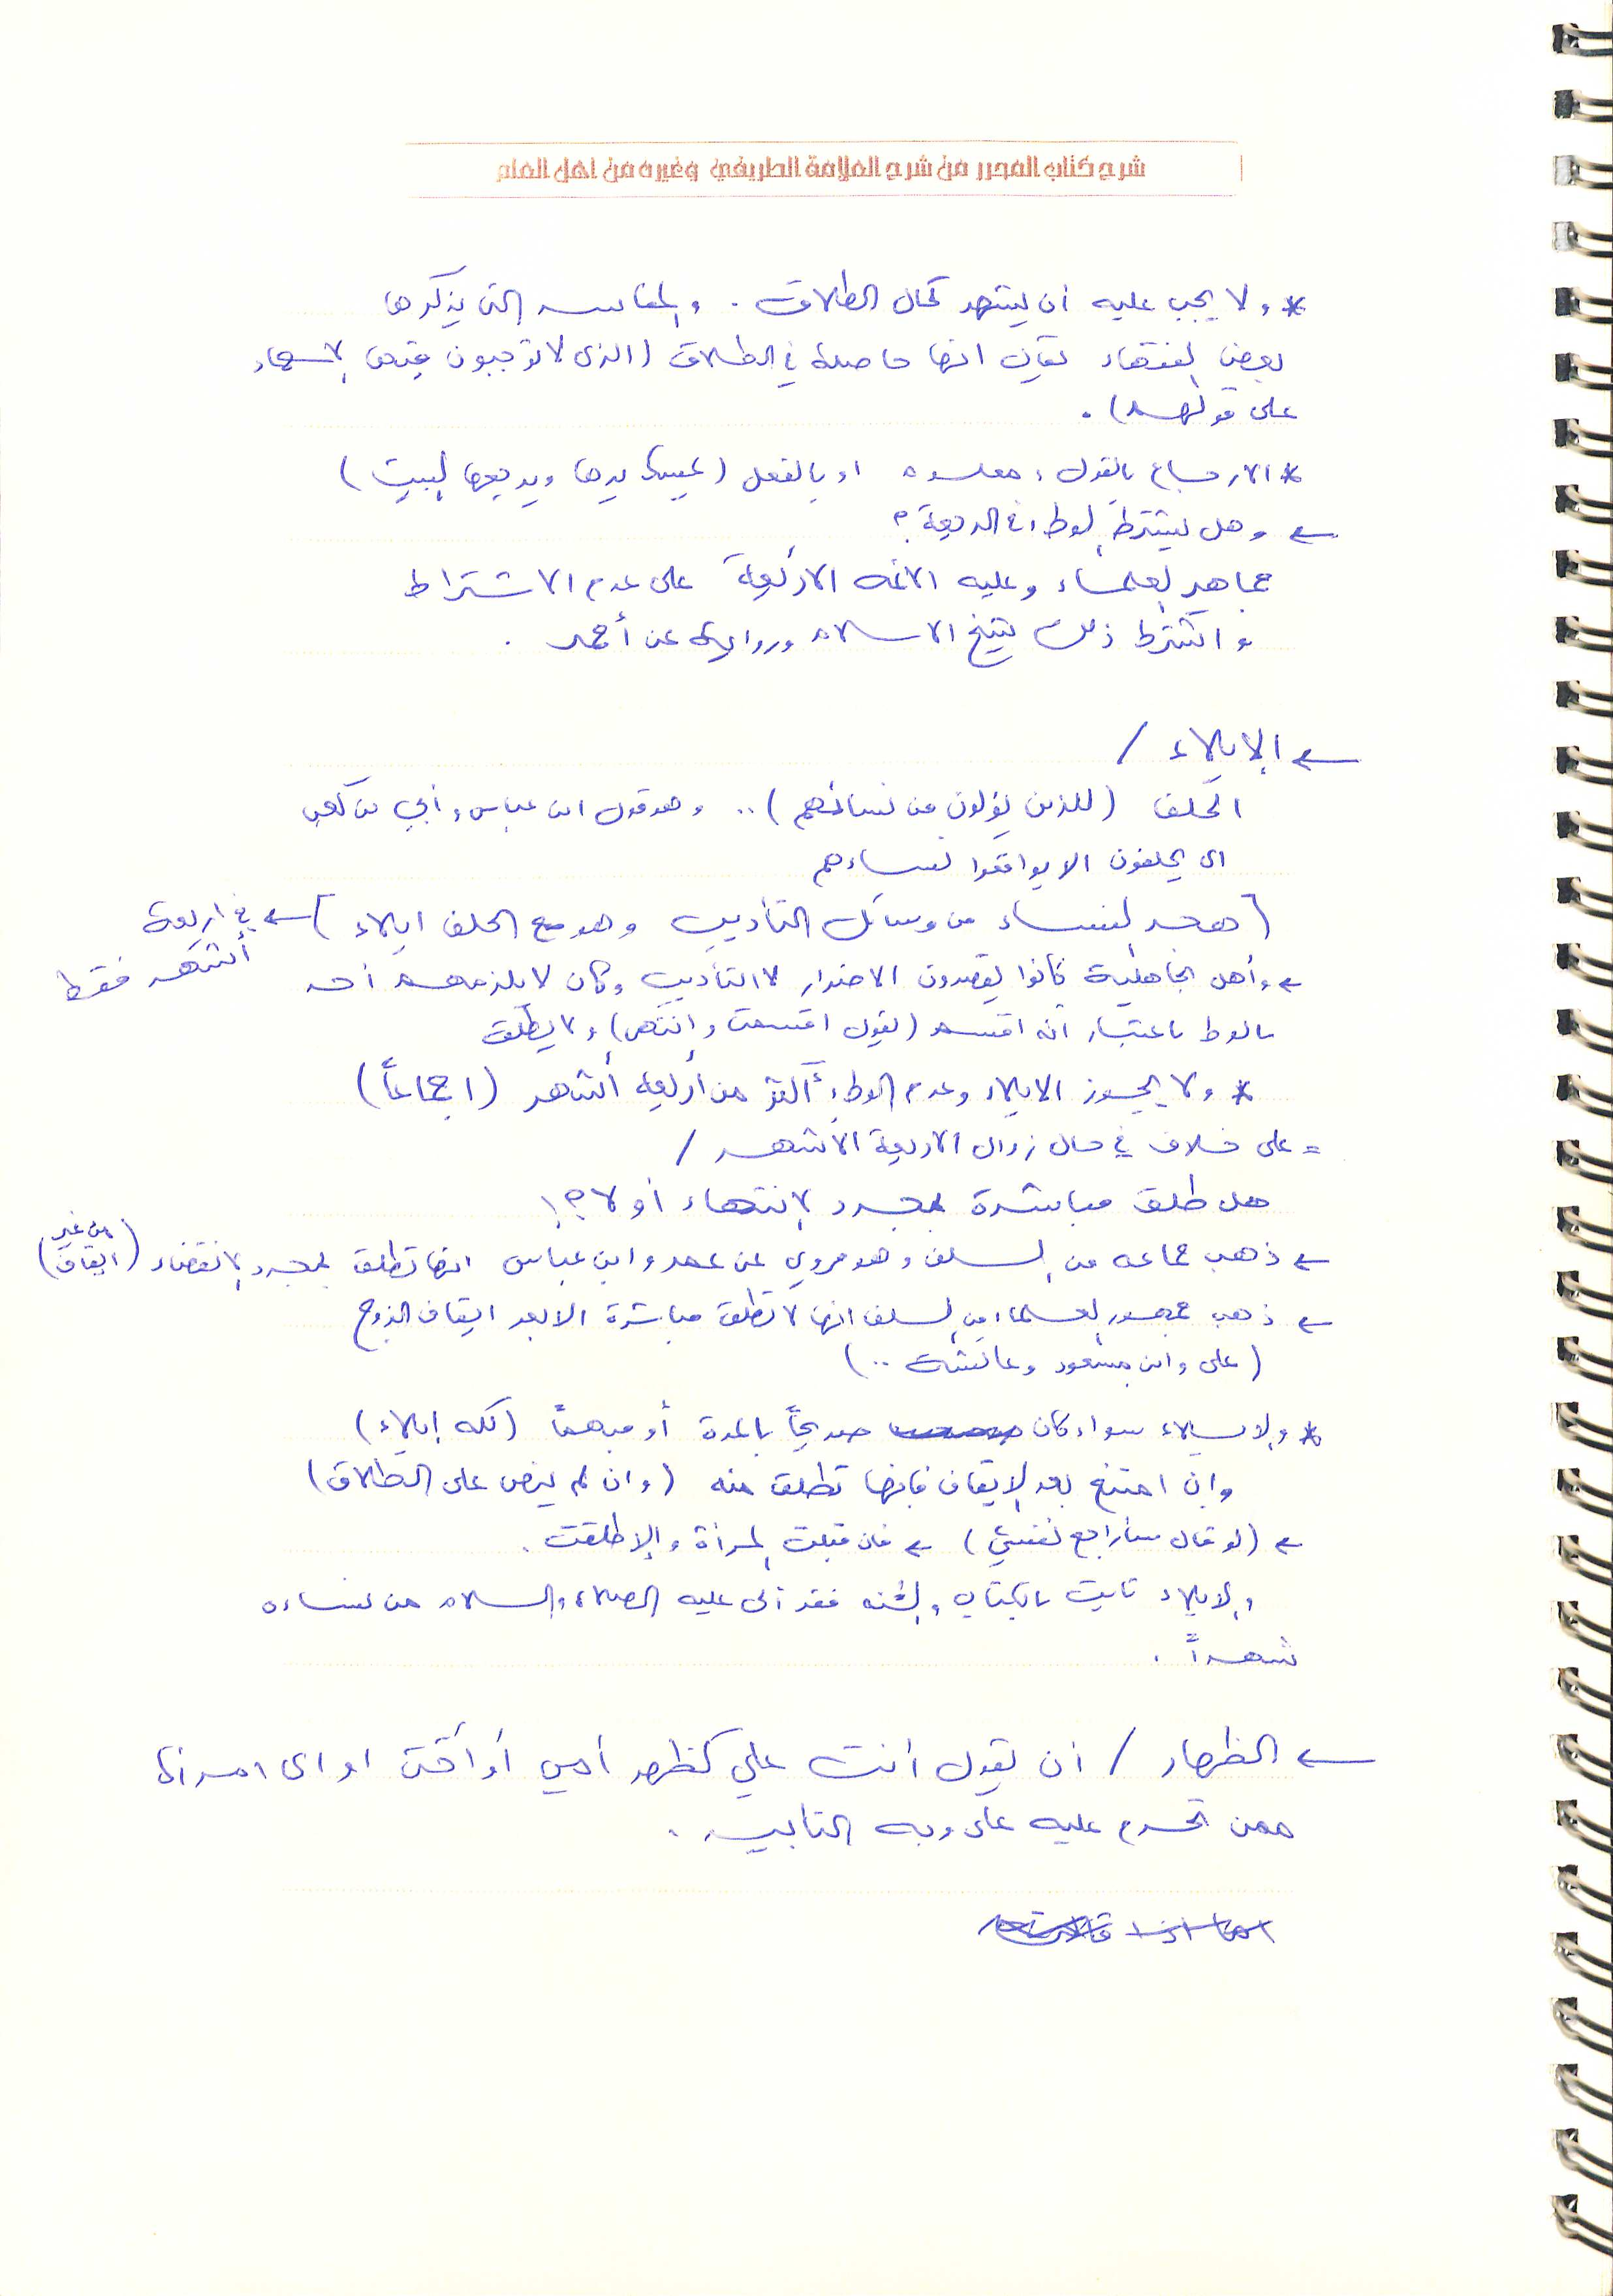 شرح كتاب المحرر من شرح العلامة الطريفي وغيره من اهل العلم
* ولا يجب عليه أن يشهد كحال الطلاق . والمفاسد التي يذكرها
بعض الفقهاء تقابل انها حاصلة في الطلاق (الذي لا توجبون فيه الاشهاد
على قولهم) .
* الارجاع بالقول ، معلوم او بالفعل (يمسك يدها ويدخلها البيت)
← وهل يشترط الوطء في الرجعة ؟
جماهير العلماء وعليه الائمه الاربعة على عدم الاشتراط
و اشترط ذلك شيخ الاسلام ورواية عن أحمد .
← الإيلاء /
الحلف (للذين يؤلون من نسائهم) .. وهو قول ابن عباس وأبي بن كعب
اى يحلفون الا يواقعوا نساءهم
(هجر النساء من وسائل التأديب وهو مع الحلف ايلاء) ← في اربعة أشهر فقط
← وأهل الجاهلية كانوا يقصدون الاضرار لا التأديب وكان لا يلزمهم أحد
بالوط باعتبار انه اقسم (يقول اقسمت وانتهى) ولا يطلق
* ولا يجوز الايلاء وعدم الوطء أكثر من أربعة أشهر (اجماعاً)
= على خلاف في حال زوال الاربعة الأشهر /
هل طلق مباشرة بمجرد الانتهاء أو لا ؟!
← ذهب جماعه من السلف وهو مروي عن عمر وابن عباس انها تطلق بمجرد الانقضاء (من غير ايقاف)
← ذهب جمهور العلماء من السلف انها لا تطلق مباشرة الا بعد ايقاف الزوج
(على وابن مسعود وعائشة ..)
* والايلاء سواء كان صريحاً بالمدة أو مبهماً (كله إيلاء)
وان امتنع بعد الايقاف فانها تطلق منه (وان لم ينص على الطلاق)
← (لو قال سأراجع نفسي) ← فان قبلت المرأة وإلا طلقت .
والايلاء ثابت بالكتاب والسنه فقد آلى عليه الصلاة والسلام من نساءه
شهراً .
← الظهار / أن يقول أنت علي كظهر أمي أو أختى او اى امرأة
ممن تحرم عليه على وجه التأبيد .